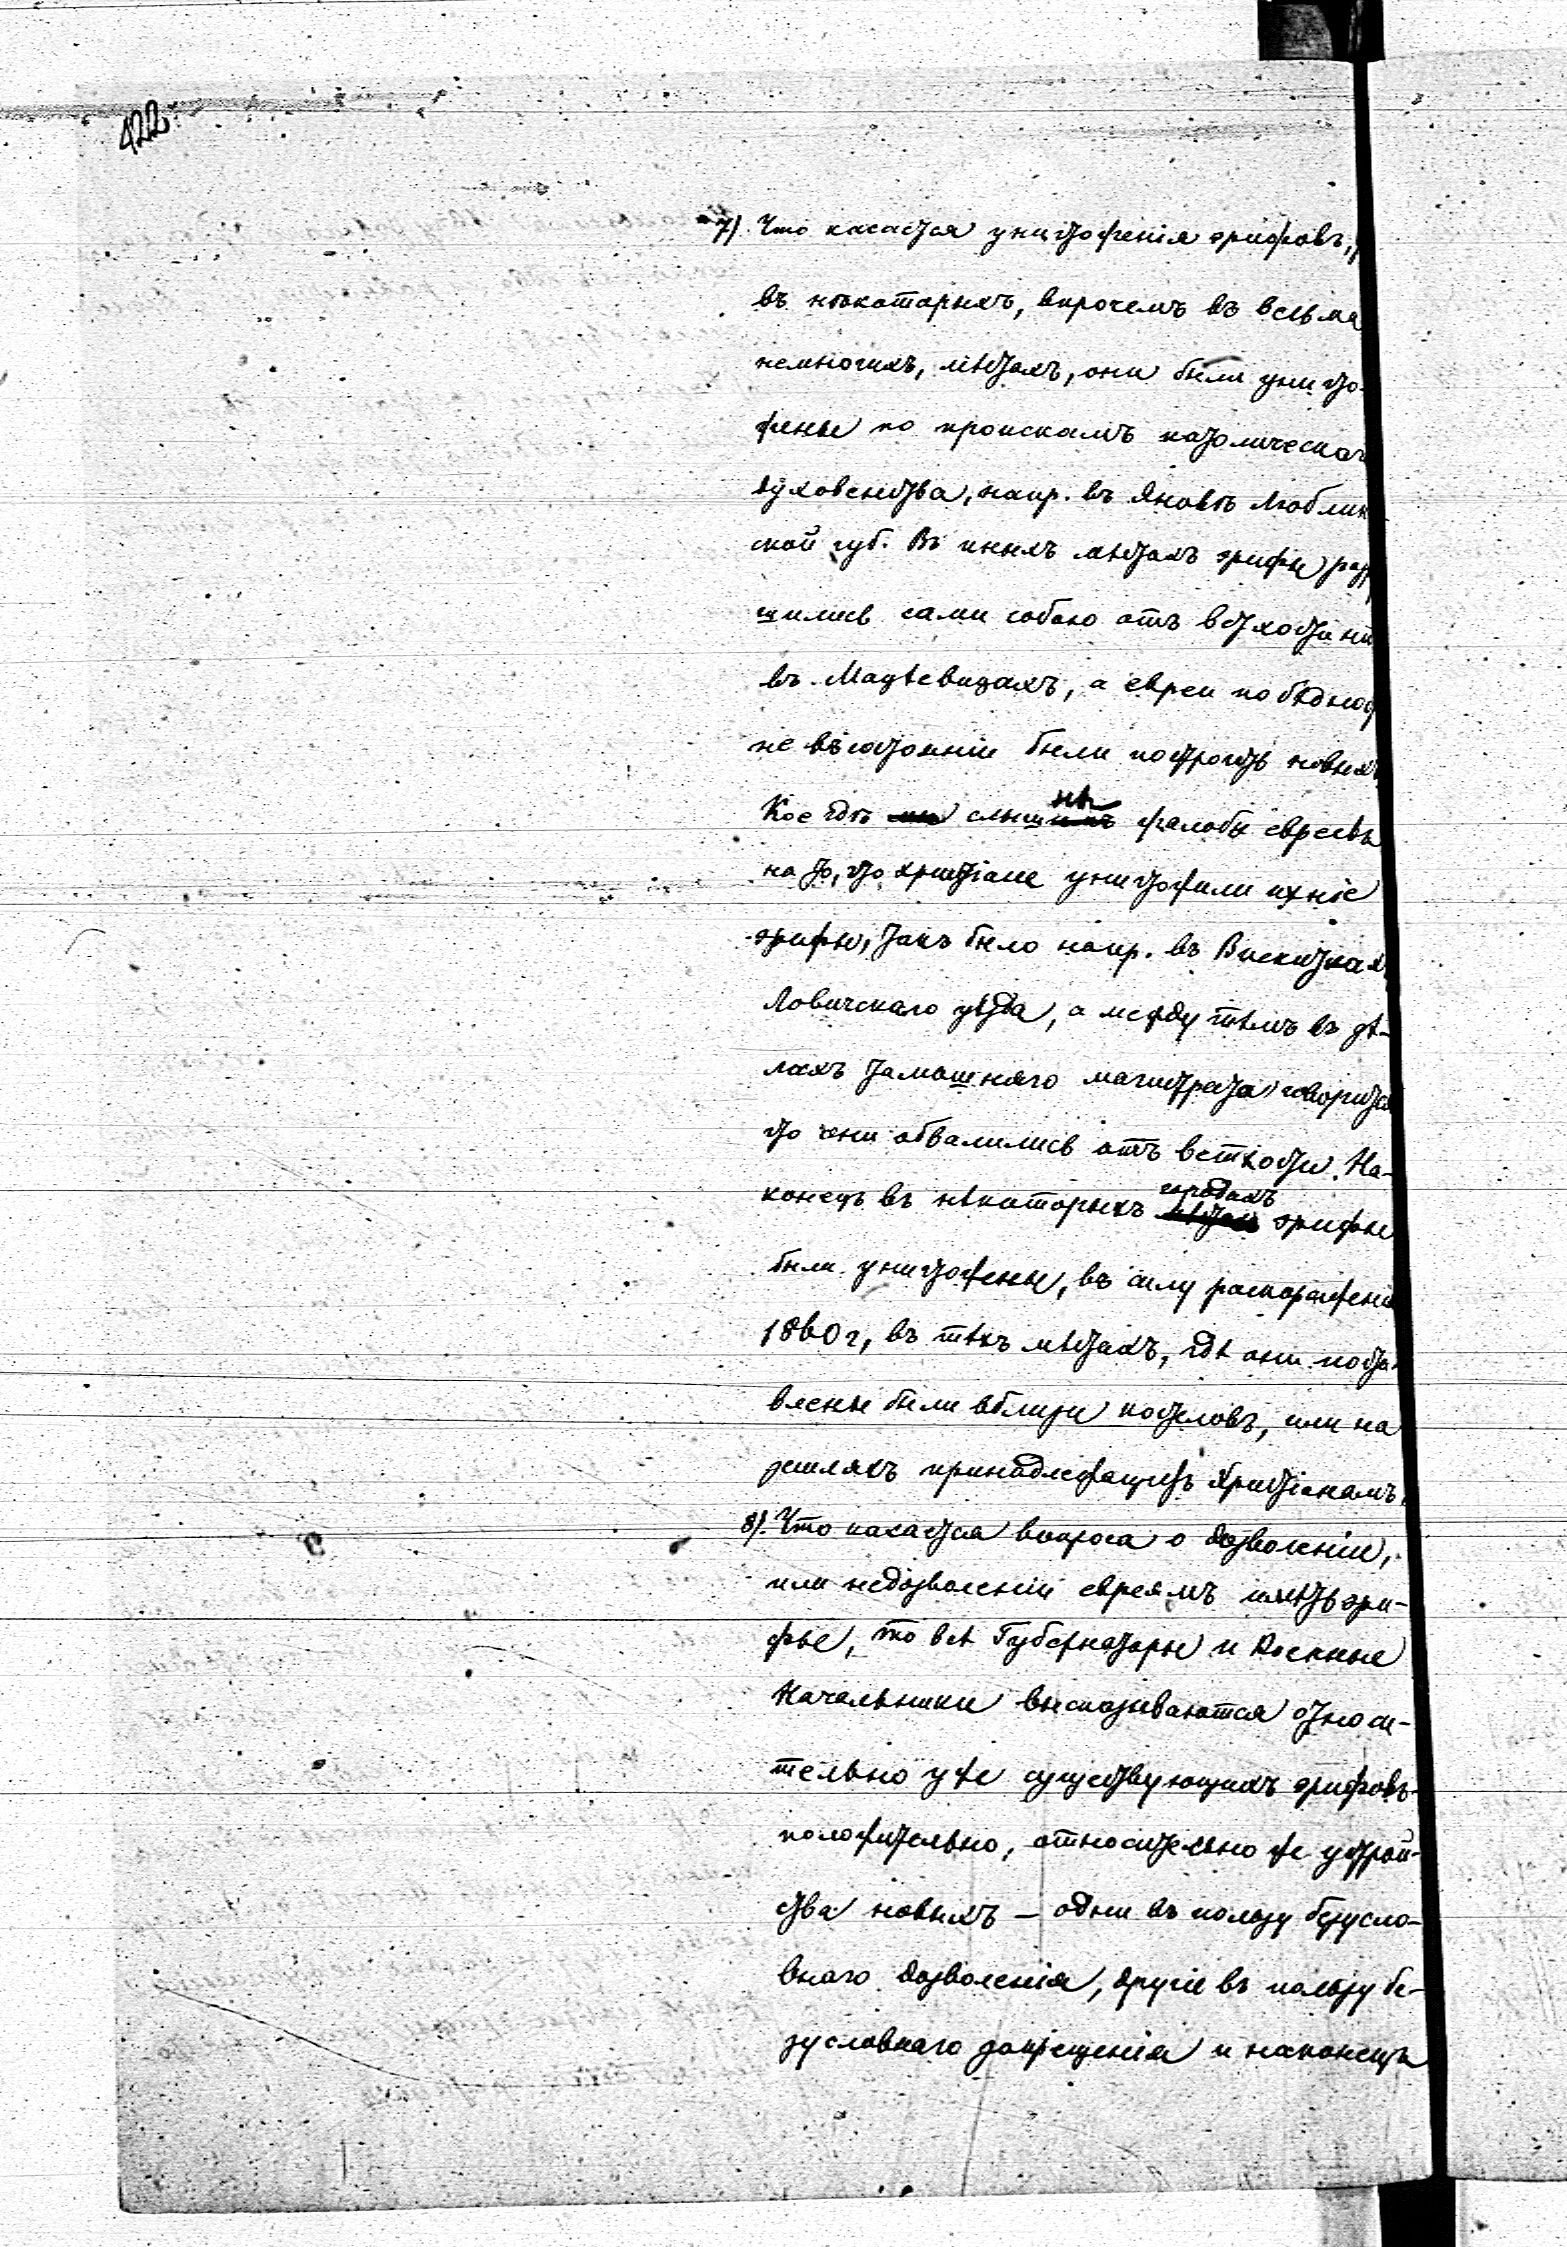 422
7). Что касается уничтоженія эрифовъ,
въ нѣкоторыхъ, впрочемъ въ весьма
немногихъ, мѣстахъ, они были уничто-
жены по проискамъ католическаго
духовенства, напр. въ Яновѣ Люблин-
ской губ. Въ иныхъ мѣстахъ эрифы
сами собою отъ ветхости
въ а евреи по бѣднос
не въ состояніи были построить новыхъ
Кое гдѣ слышны жалобы евреевъ
на то, что христіане уничтожили ихніе
эрифы, такъ было напр. въ Вискиткахъ
Ловичскаго уѣзда, а между тѣмъ въ дѣ-
лахъ тамошняго магистрата говорится
что они обвалились отъ ветхости. На-
конецъ въ нѣкоторыхъ городахъ эрифы
были уничтожены, въ силу распоряженія
1860 г, въ тѣхъ мѣстахъ, гдѣ они поста-
влены были вблизи костеловъ, или на
земляхъ принадлежащихъ Христіанамъ.
8). Что касается вопроса о дозволеніи,
или недозволеніи евреямъ имѣть эри-
фы, то всѣ Губернаторы и Военные
Начальники высказываются относи-
тельно уже существующихъ эрифовъ-
положительно, относительно же устрой-
ства новыхъ — одни въ пользу безусло-
внаго дозволенія, другіе въ пользу бе-
зусловнаго запрещенія и наконецъ